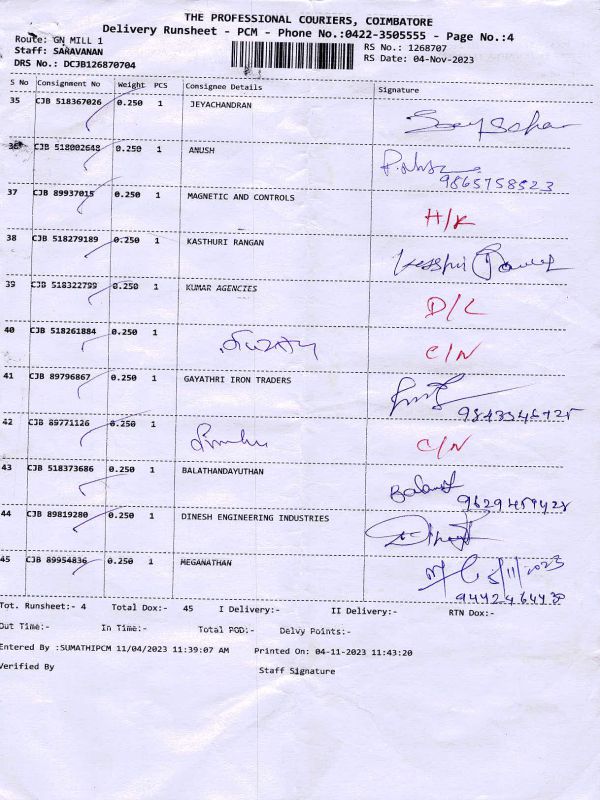 THE PROFESSIONAL COURIERS, COIMBATORE
Delivery Runsheet - PCM - Phone No.:0422-3505555 - Page No.:4
Route: GN MILL 1 RS No.: 1268707
Staff: SARAVANAN RS Date: 04-Nov-2023
DRS No.: DCJB126870704
S No Consignment No Weight PCS Consignee Details Signature
35 CJB 518367026 0.250 1 JEYACHANDRAN
36 CJB 518002648 0.250 1 ANUSH
9865758523
37 CJB 89937015 0.250 1 MAGNETIC AND CONTROLS H/K
38 CJB 518279189 0.250 1 KASTHURI RANGAN
39 CJB 518322799 0.250 1 KUMAR AGENCIES D/L
40 CJB 518261884 0.250 1 C/N
41 CJB 89796867 0.250 1 GAYATHRI IRON TRADERS
42 CJB 89771126 0.250 1 C/N
43 CJB 518373686 0.250 1 BALATHANDAYUTHAN
44 CJB 89819280 0.250 1 DINESH ENGINEERING INDUSTRIES
45 CJB 89954836 0.250 1 MEGANATHAN
Tot. Runsheet:- 4 Total Dox:- 45 I Delivery:- II Delivery:- RTN Dox:-
Out Time:- In Time:- Total POD:- Delvy Points:-
Entered By :SUMATHIPCM 11/04/2023 11:39:07 AM Printed On: 04-11-2023 11:43:20
Verified By Staff Signature